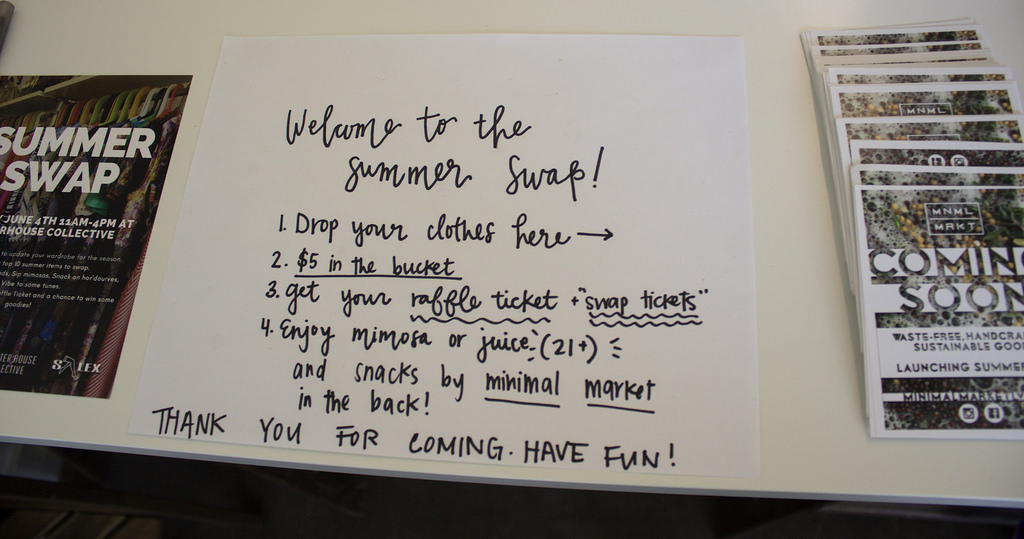 Welcome to the
summer swap!
1. Drop your clothes here →
2. $5 in the bucket
3. get your raffle ticket + "swap tickets"
4. Enjoy mimosa or juice (21+)
and snacks by minimal market
in the back!
THANK YOU FOR COMING. HAVE FUN!
SUMMER
SWAP
JUNE 4TH 11AM-4PM AT
RHOUSE COLLECTIVE
to update your wardrobe for the season.
top 10 summer items to swap.
Sip mimosas, Snack on hor'dourves,
Vibe to some tunes.
Ticket and a chance to win some
goodies!
TER HOUSE
LECTIVE
MNML
MNML
MRKT
COMING
SOON
WASTE-FREE, HANDCRA
SUSTAINABLE GOO
LAUNCHING SUMMER